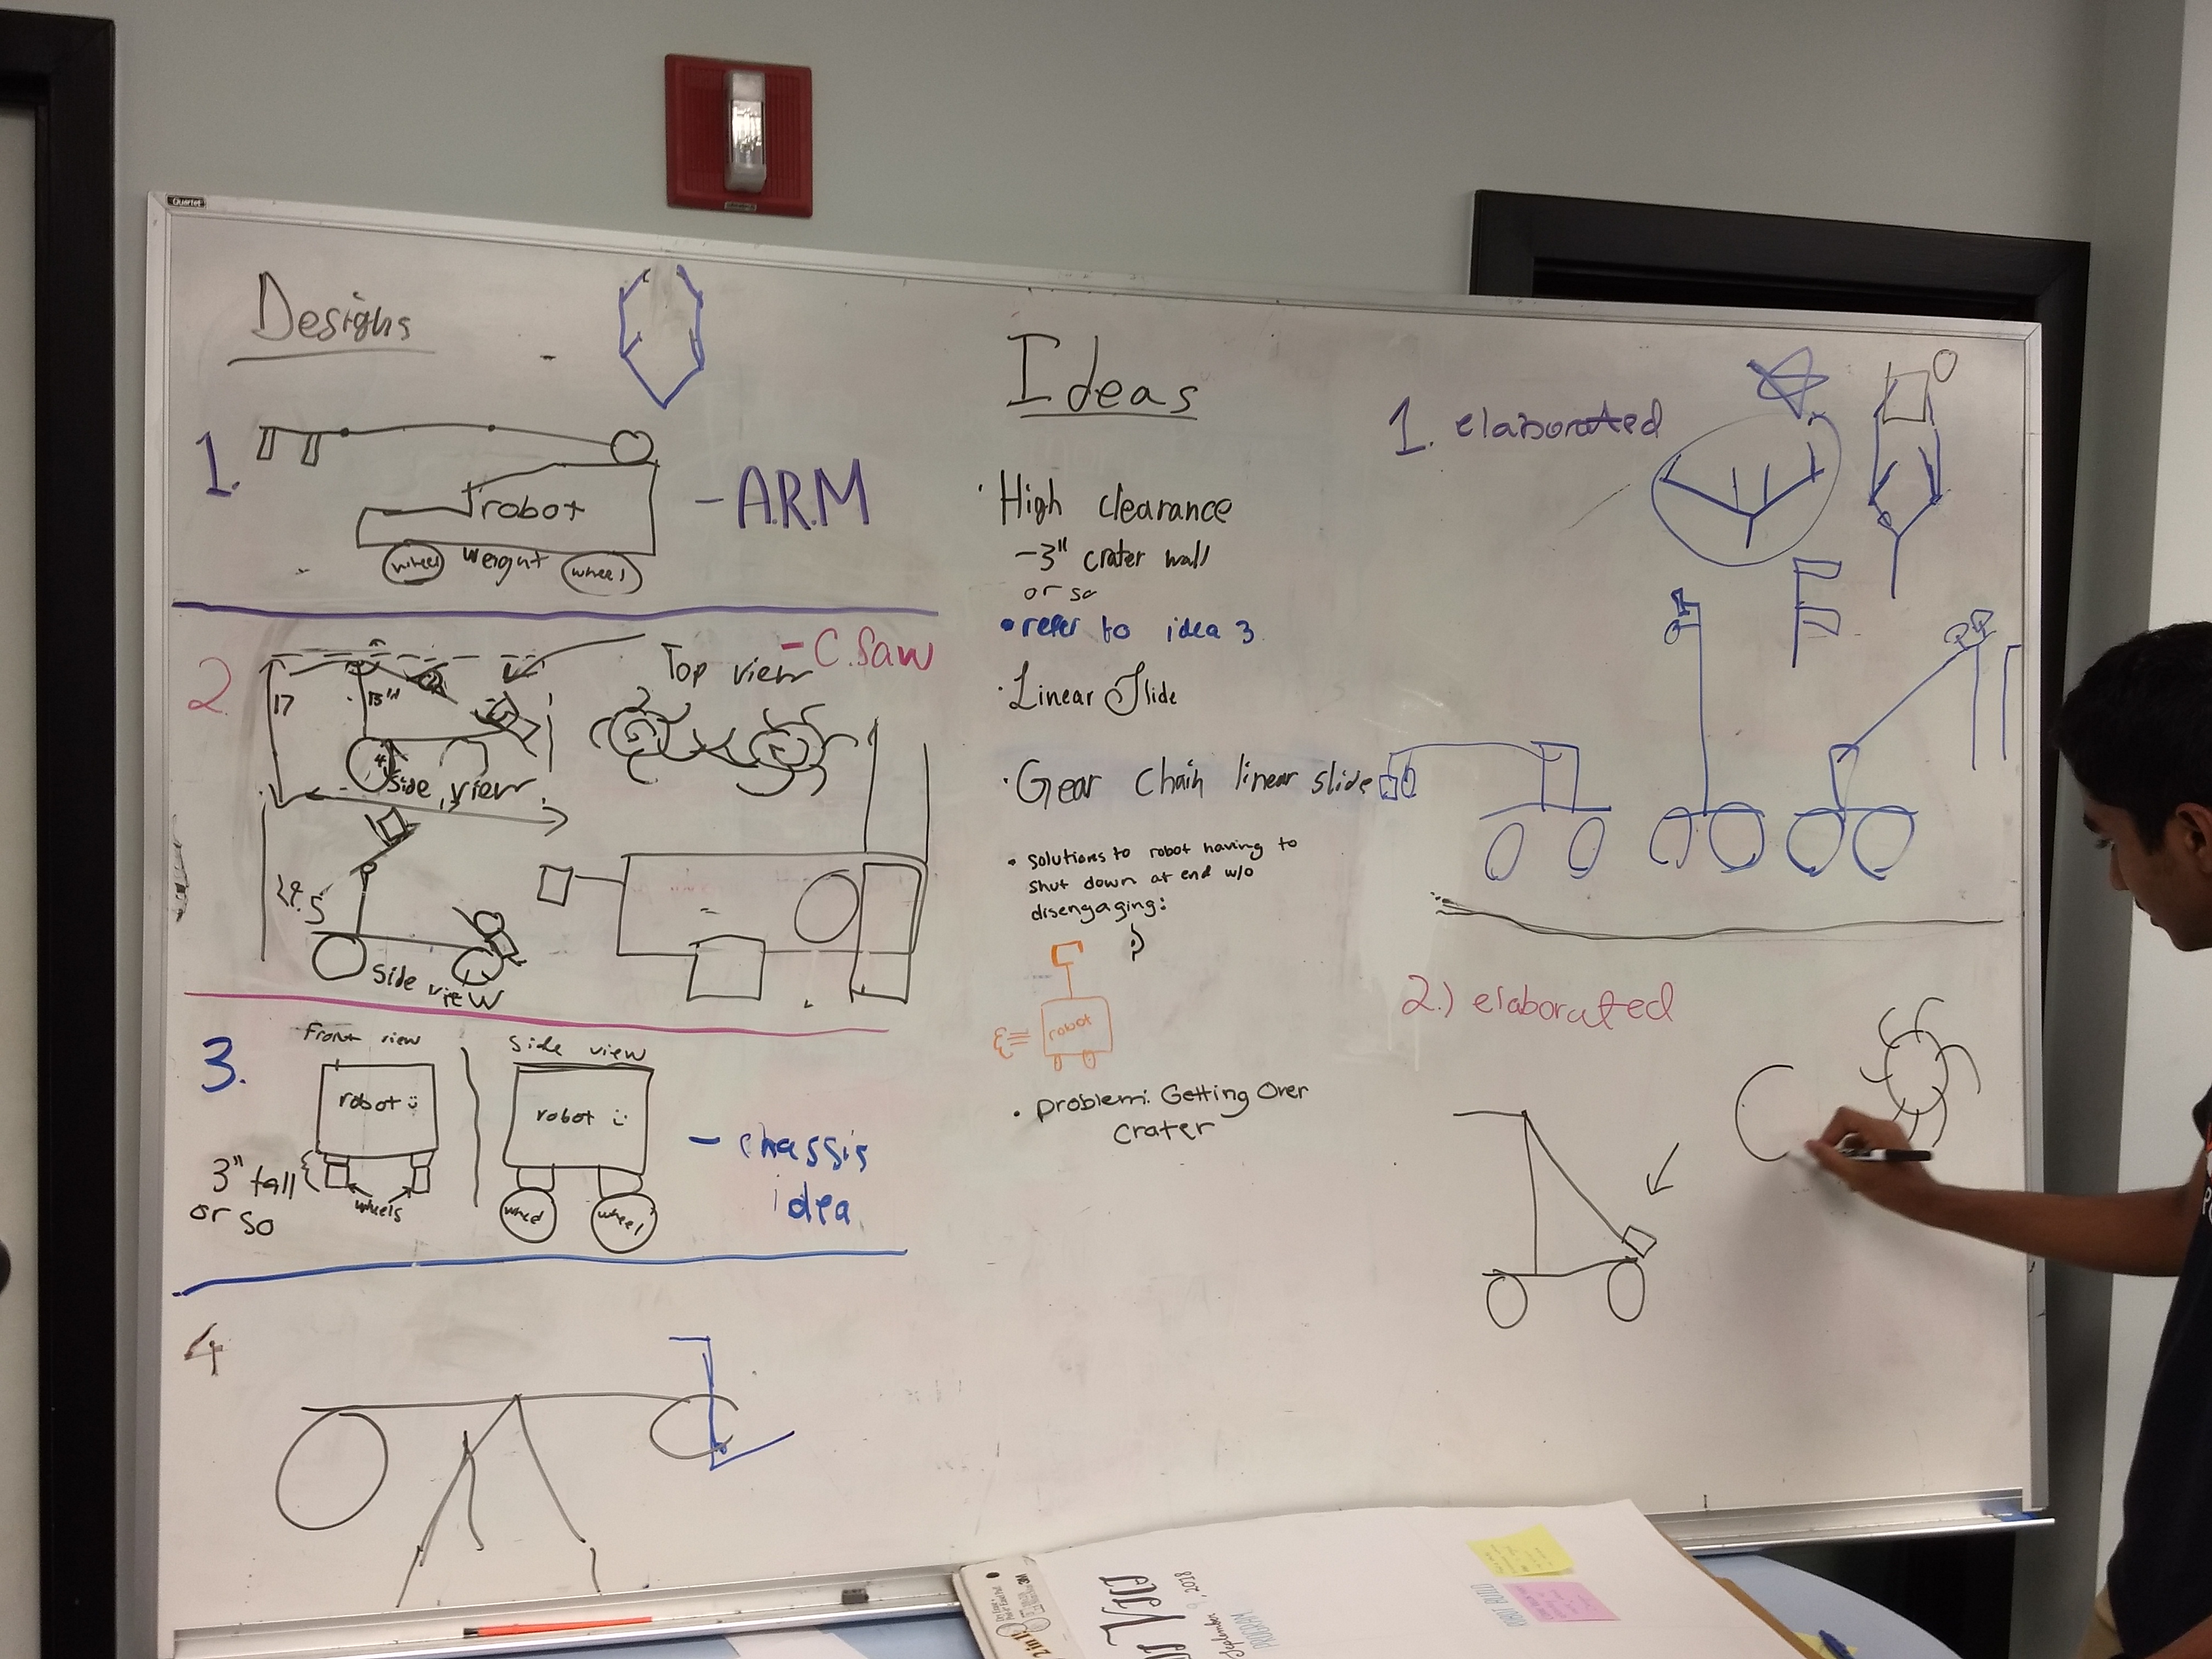 Quartet
Designs
1.
robot
wheel
weight
wheel
- A.R.M
2.
- C. Saw
Top view
17
15"
4"
side view
24.5
side view
3.
Front view
side view
robot
robot
3" tall
or so
wheels
wheel
wheel
- chassis
idea
4
Ideas
· High clearance
- 3" crater wall
or so
• refer to idea 3
· Linear Slide
· Gear Chain linear slide
• solutions to robot having to
shut down at end w/o
disengaging:
robot
• problem: Getting Over
crater
1. elaborated
2.) elaborated
2 in 1
September 9, 2018
PROGRAM
ROBOT BUILD